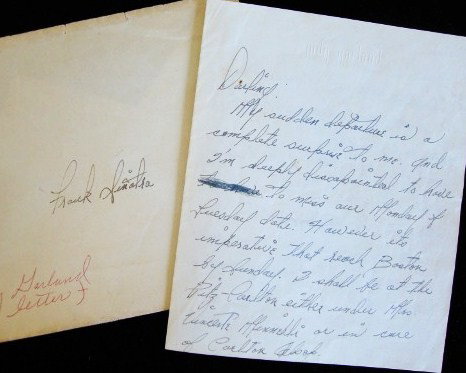 Frank Sinatra
Garland
letter
Judy Garland
Darling:
My sudden departure is a
complete surprise to me. And
I'm deeply disappointed to have
to miss our Monday &
Tuesday date. However its
imperative that reach Boston
by Sunday. I shall be at the
Ritz Carlton either under Mrs
Vincente Minnelli or in care
of Carlton